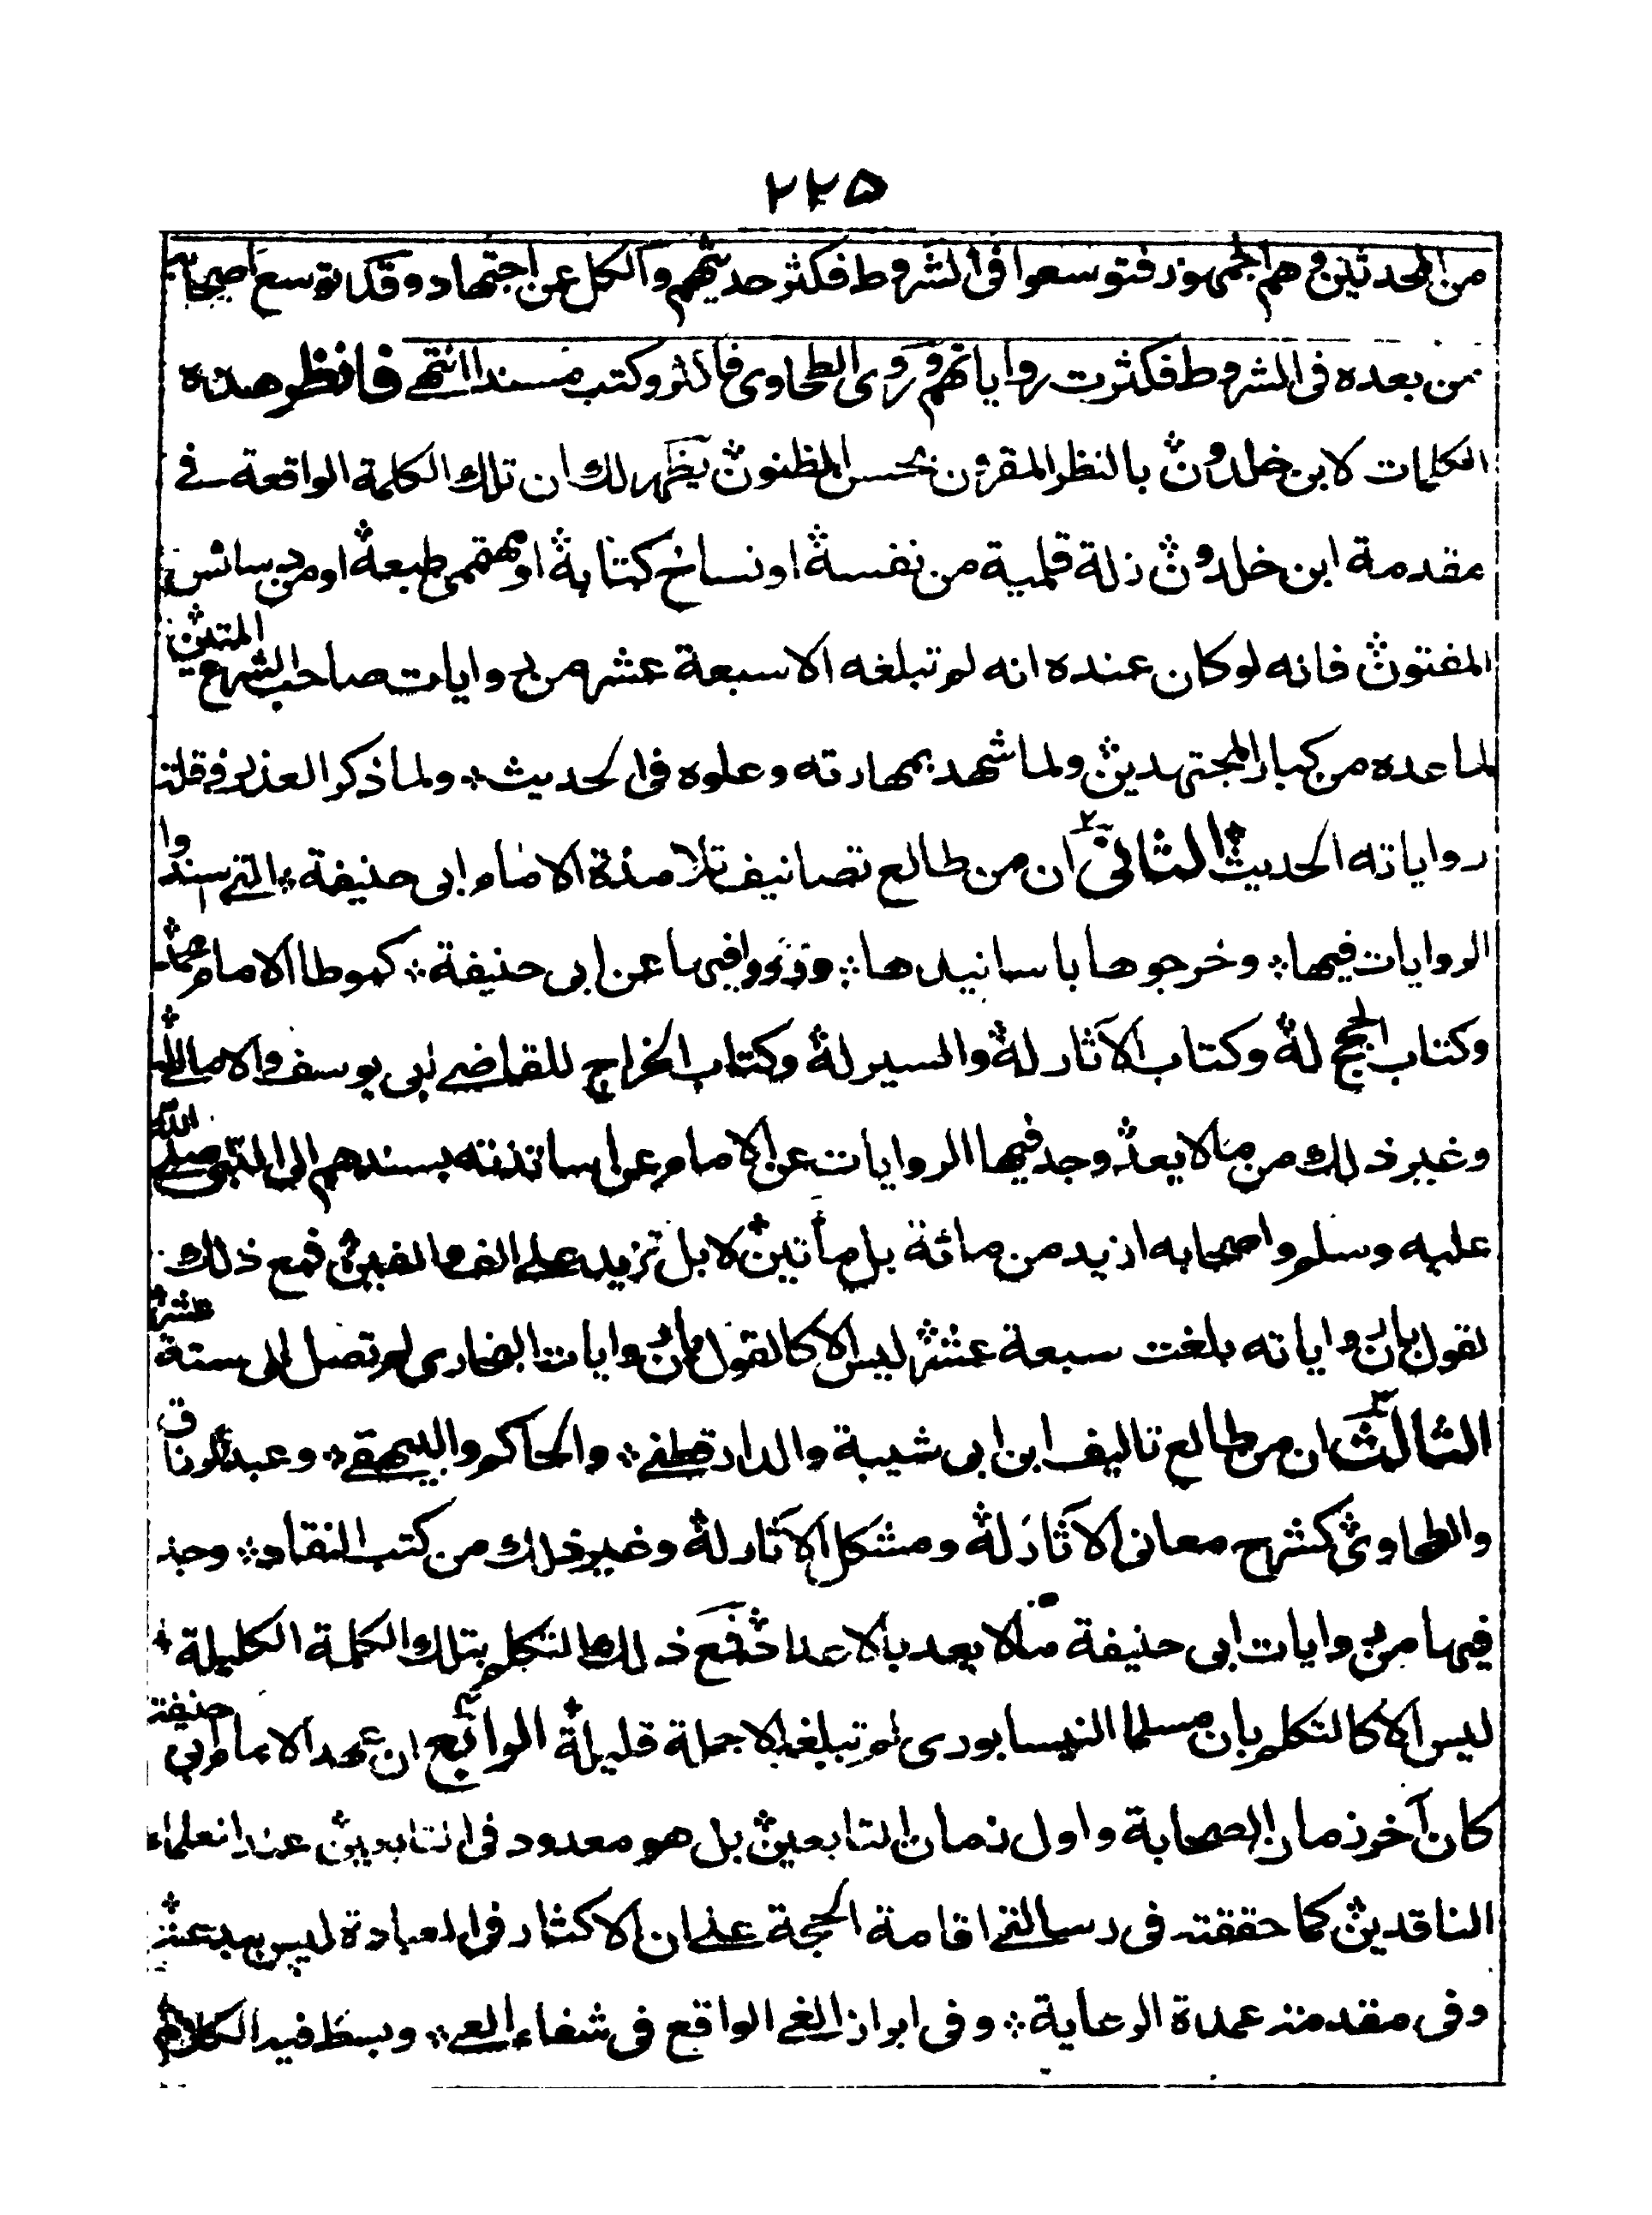 ٢٢٥
من المحدثين وهم الجمهور فتوسعوا فى الشروط فكثر حديثهم والكل عن اجتهاد وقد توسع اصحابه
من بعده فى الشروط فكثرت رواياتهم وروى الطحاوى فاكثر وكتب مسندا انتهى فانظر هذه
الكلمات لابن خلدون بالنظر المقرون بحسن الظنون يظهر لك ان تلك الكلمة الواقعة فى
مقدمة ابن خلدون زلة قلمية من نفسه او نساخ كتابه او مهتمى طبعه او من دسائس
المفتون فانه لو كان عنده انه لم تبلغه الا سبعة عشر من روايات صاحب الشرع المتين
لما عده من كبار المجتهدين ولما شهد بمهارته وعلوه فى الحديث ولما ذكر العذر فى قلة
رواياته الحديث الثانى ٢ ان من طالع تصانيف تلامذة الامام ابى حنيفة التى اسندوا
الروايات فيها وخرجوها باسانيدها ورووا فيها عن ابى حنيفة كموطا الامام محمد
وكتاب الحجج له وكتاب الآثار له والسير له وكتاب الخراج للقاضى ابى يوسف والامالى له
وغير ذلك من ما لا يعد وجد فيها الروايات عن الامام عن اساتذته بسندهم الى النبى صلى الله
عليه وسلم واصحابه ازيد من مائة بل مأتين لا بل تزيد على الف والفين فمع ذلك
القول بان رواياته بلغت سبعة عشر ليس الا كالقول بان روايات البخارى لم تصل الى ستة عشر
الثالث ٣ ان من طالع تاليف ابن ابى شيبة والدارقطنى والحاكم والبيهقى وعبد الرزاق
والطحاوى كشرح معانى الآثار له ومشكل الآثار له وغير ذلك من كتب النقاد وجد
فيها من روايات ابى حنيفة ما لا يعد بالاعداد فمع ذلك التكلم بتلك الكلمة الكليلة
ليس الا كالتكلم بان مسلما النيسابورى لم تبلغه الا جملة قليلة الرابع ٤ ان عهد الامام ابى حنيفة
كان آخر زمان الصحابة واول زمان التابعين بل هو معدود فى التابعين عند العلماء
الناقدين كما حققته فى رسالتى اقامة الحجة على ان الاكثار فى العبادة ليس ببدعة
وفى مقدمة عمدة الرعاية وفى ابراز الغى الواقع فى شفاء العى وبسط فيه الكلام